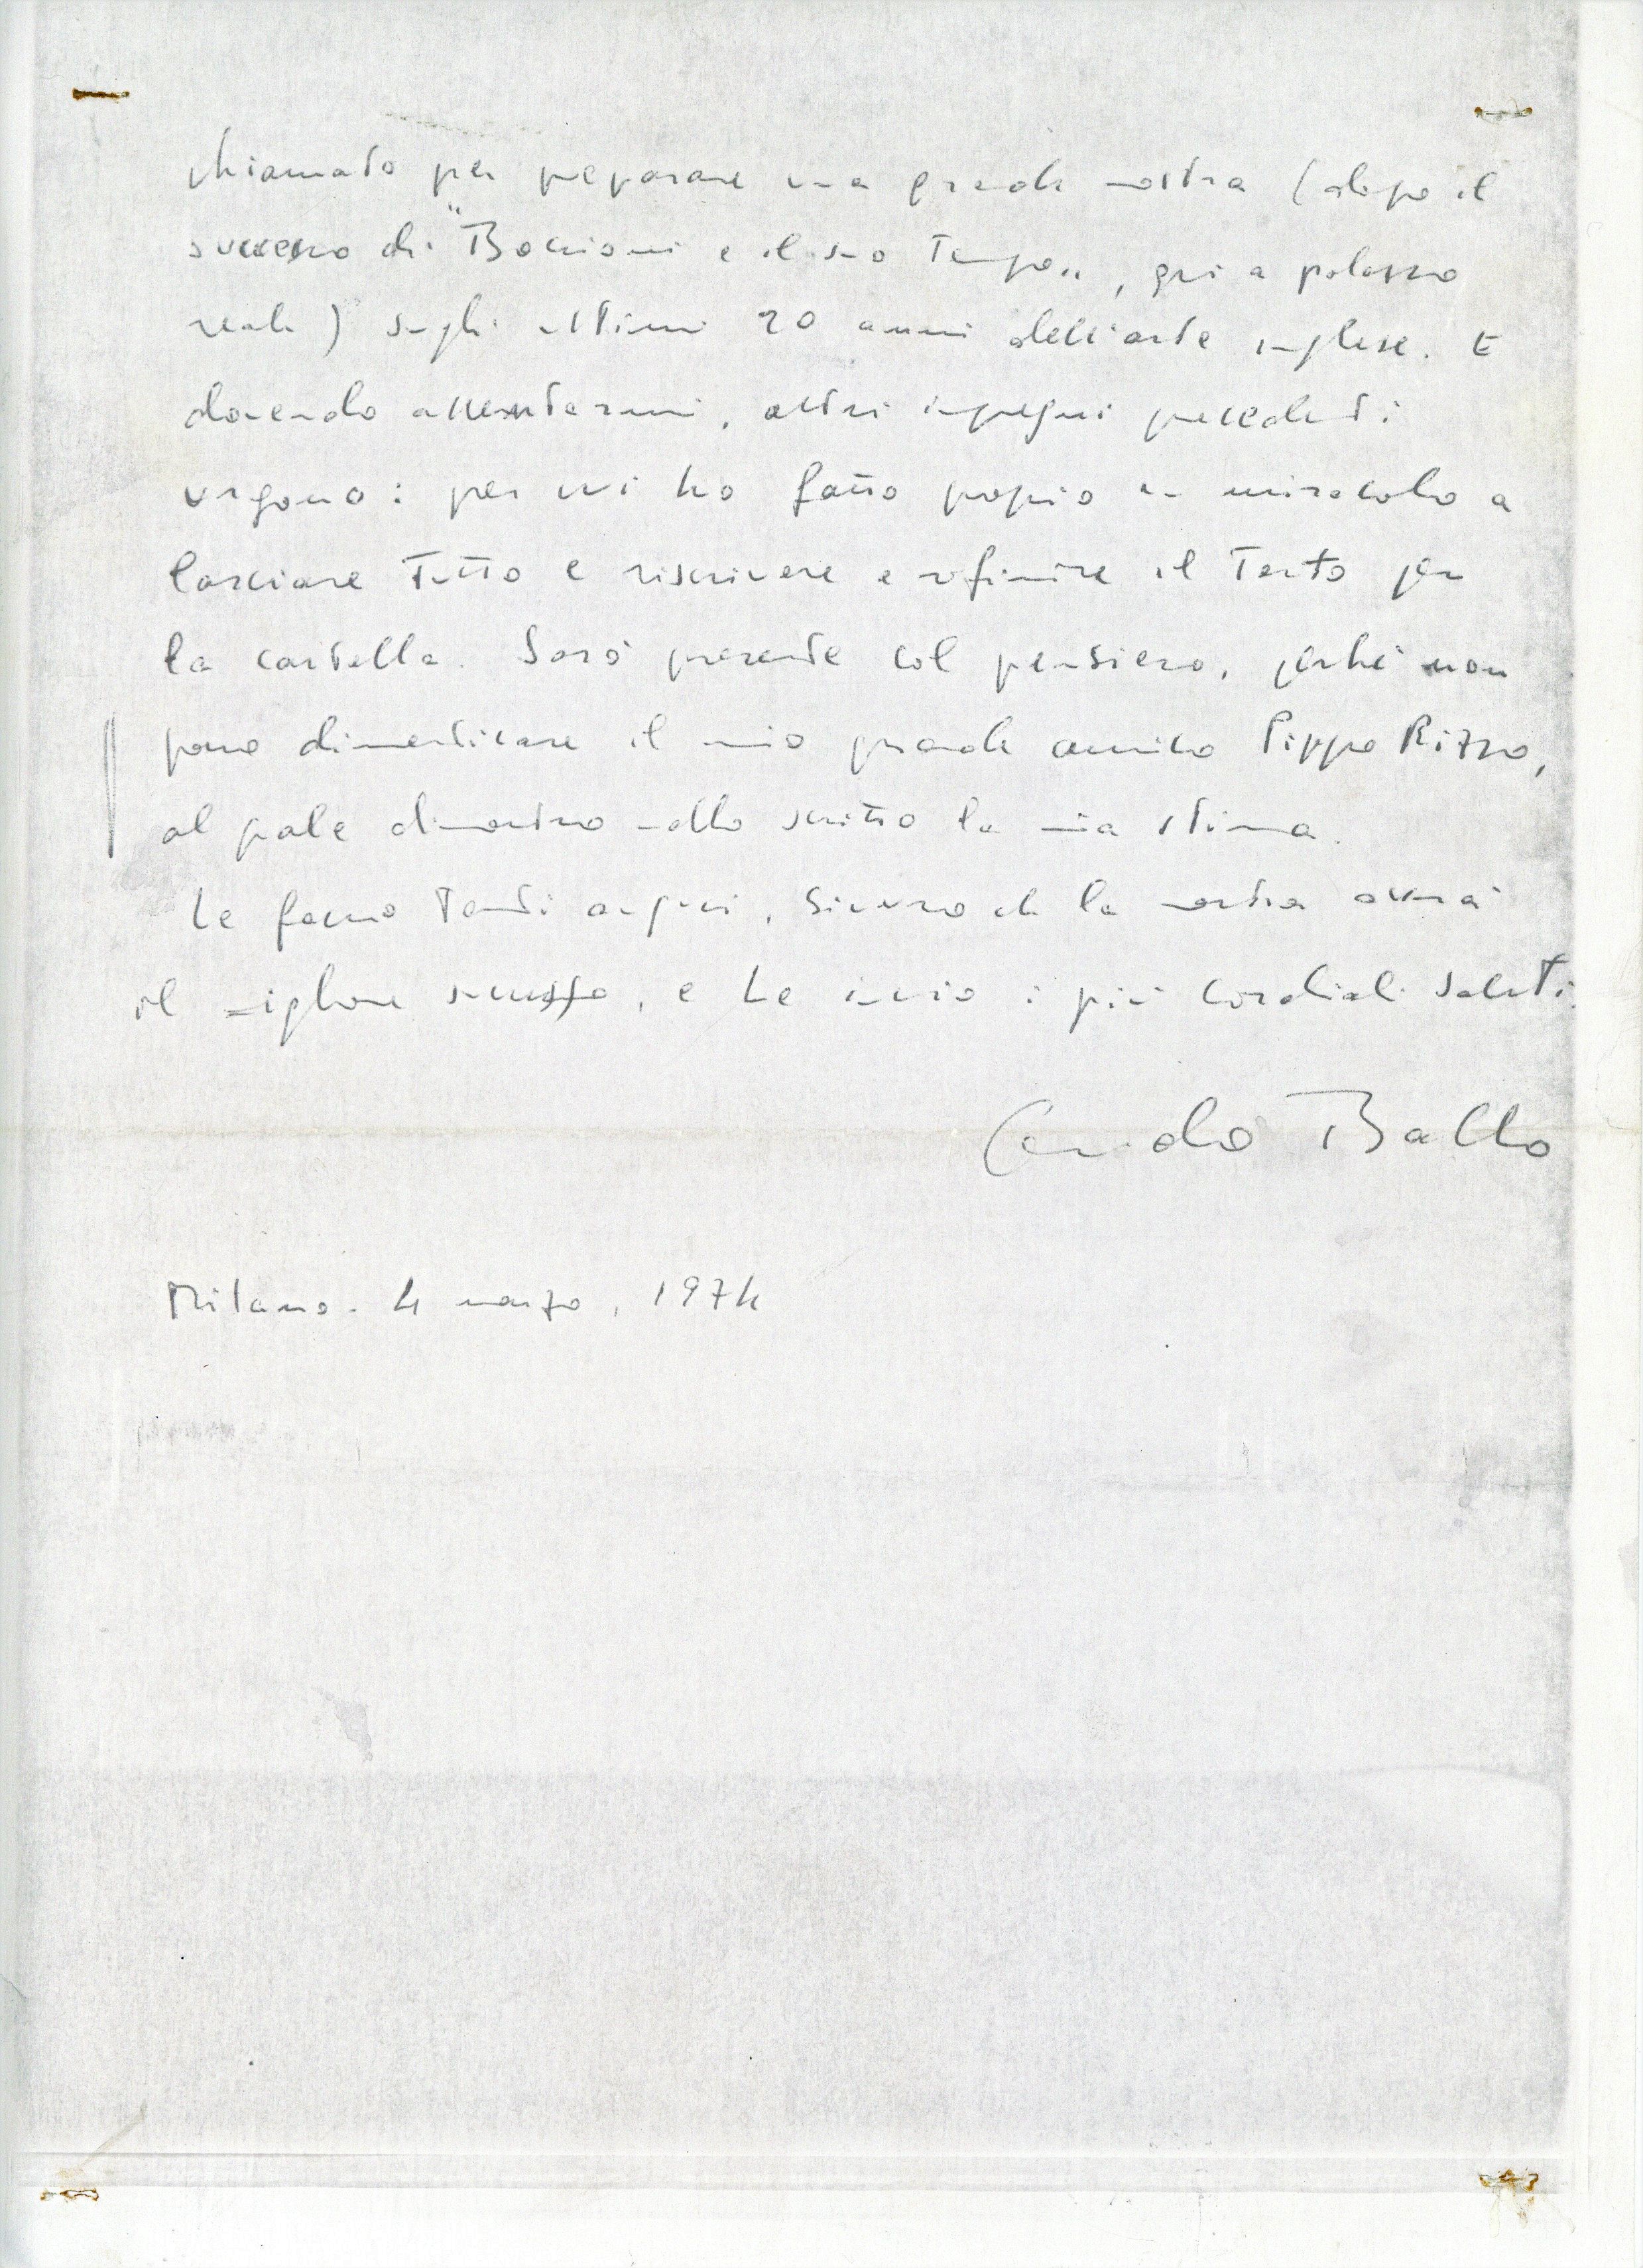 chiamato per preparare una grande mostra (dopo il
successo di "Boccioni e il suo Tempo„, qui a palazzo
reale) sugli ultimi 20 anni dell'arte inglese. E
dovendo assentarmi, altri impegni precedenti
urgono: per cui ho fatto proprio un miracolo a
lasciare Tutto e riscrivere e rifinire il Testo per
la cartella. Sarò presente col pensiero, perché non
posso dimenticare il mio grande amico Pippo Rizzo,
al quale dimostro nello scritto la mia stima.
Le faccio Tanti auguri, sicuro che la mostra avrà
il migliore successo, e Le invio i più cordiali saluti.
Guido Ballo
Milano. 4 marzo, 1974